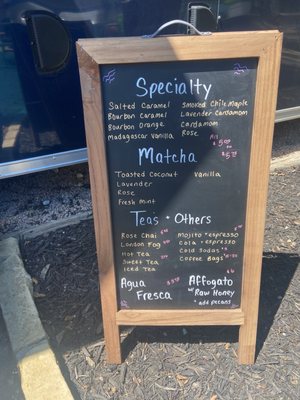 Specialty
Salted Caramel
Smoked Chile Maple
Bourbon Caramel
Lavender Cardamom
Bourbon Orange
Cardamom
Madagascar Vanilla
Rose
Matcha
Toasted Coconut
Vanilla
Lavender
Rose
Fresh Mint
Teas + Others
Rose Chai
Mojito + espresso
London Fog
Cola + espresso
Hot Tea
Cold Sodas
Sweet Tea
Coffee Bags
Iced Tea
Agua
Fresca
Affogato
w/ Raw Honey
* add pecans